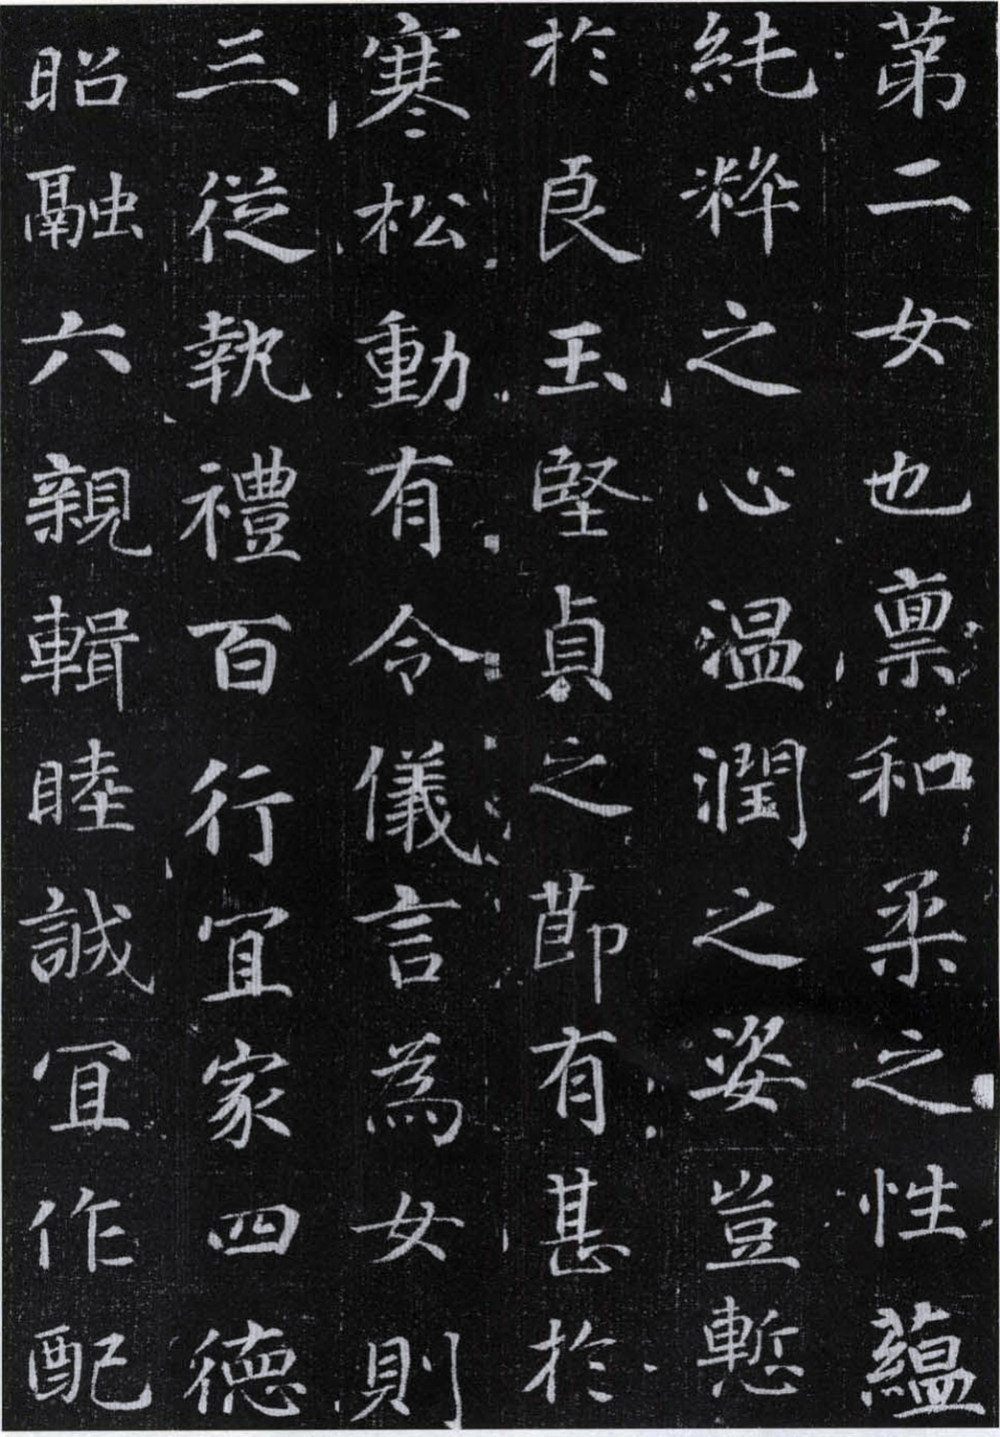 第二女也禀和柔之性蘊
純粹之心温潤之姿豈慙
於良玉堅貞之莭有甚於
寒松動有令儀言為女則
三従執禮百行冝家四徳
昭融六親輯睦誠冝作配